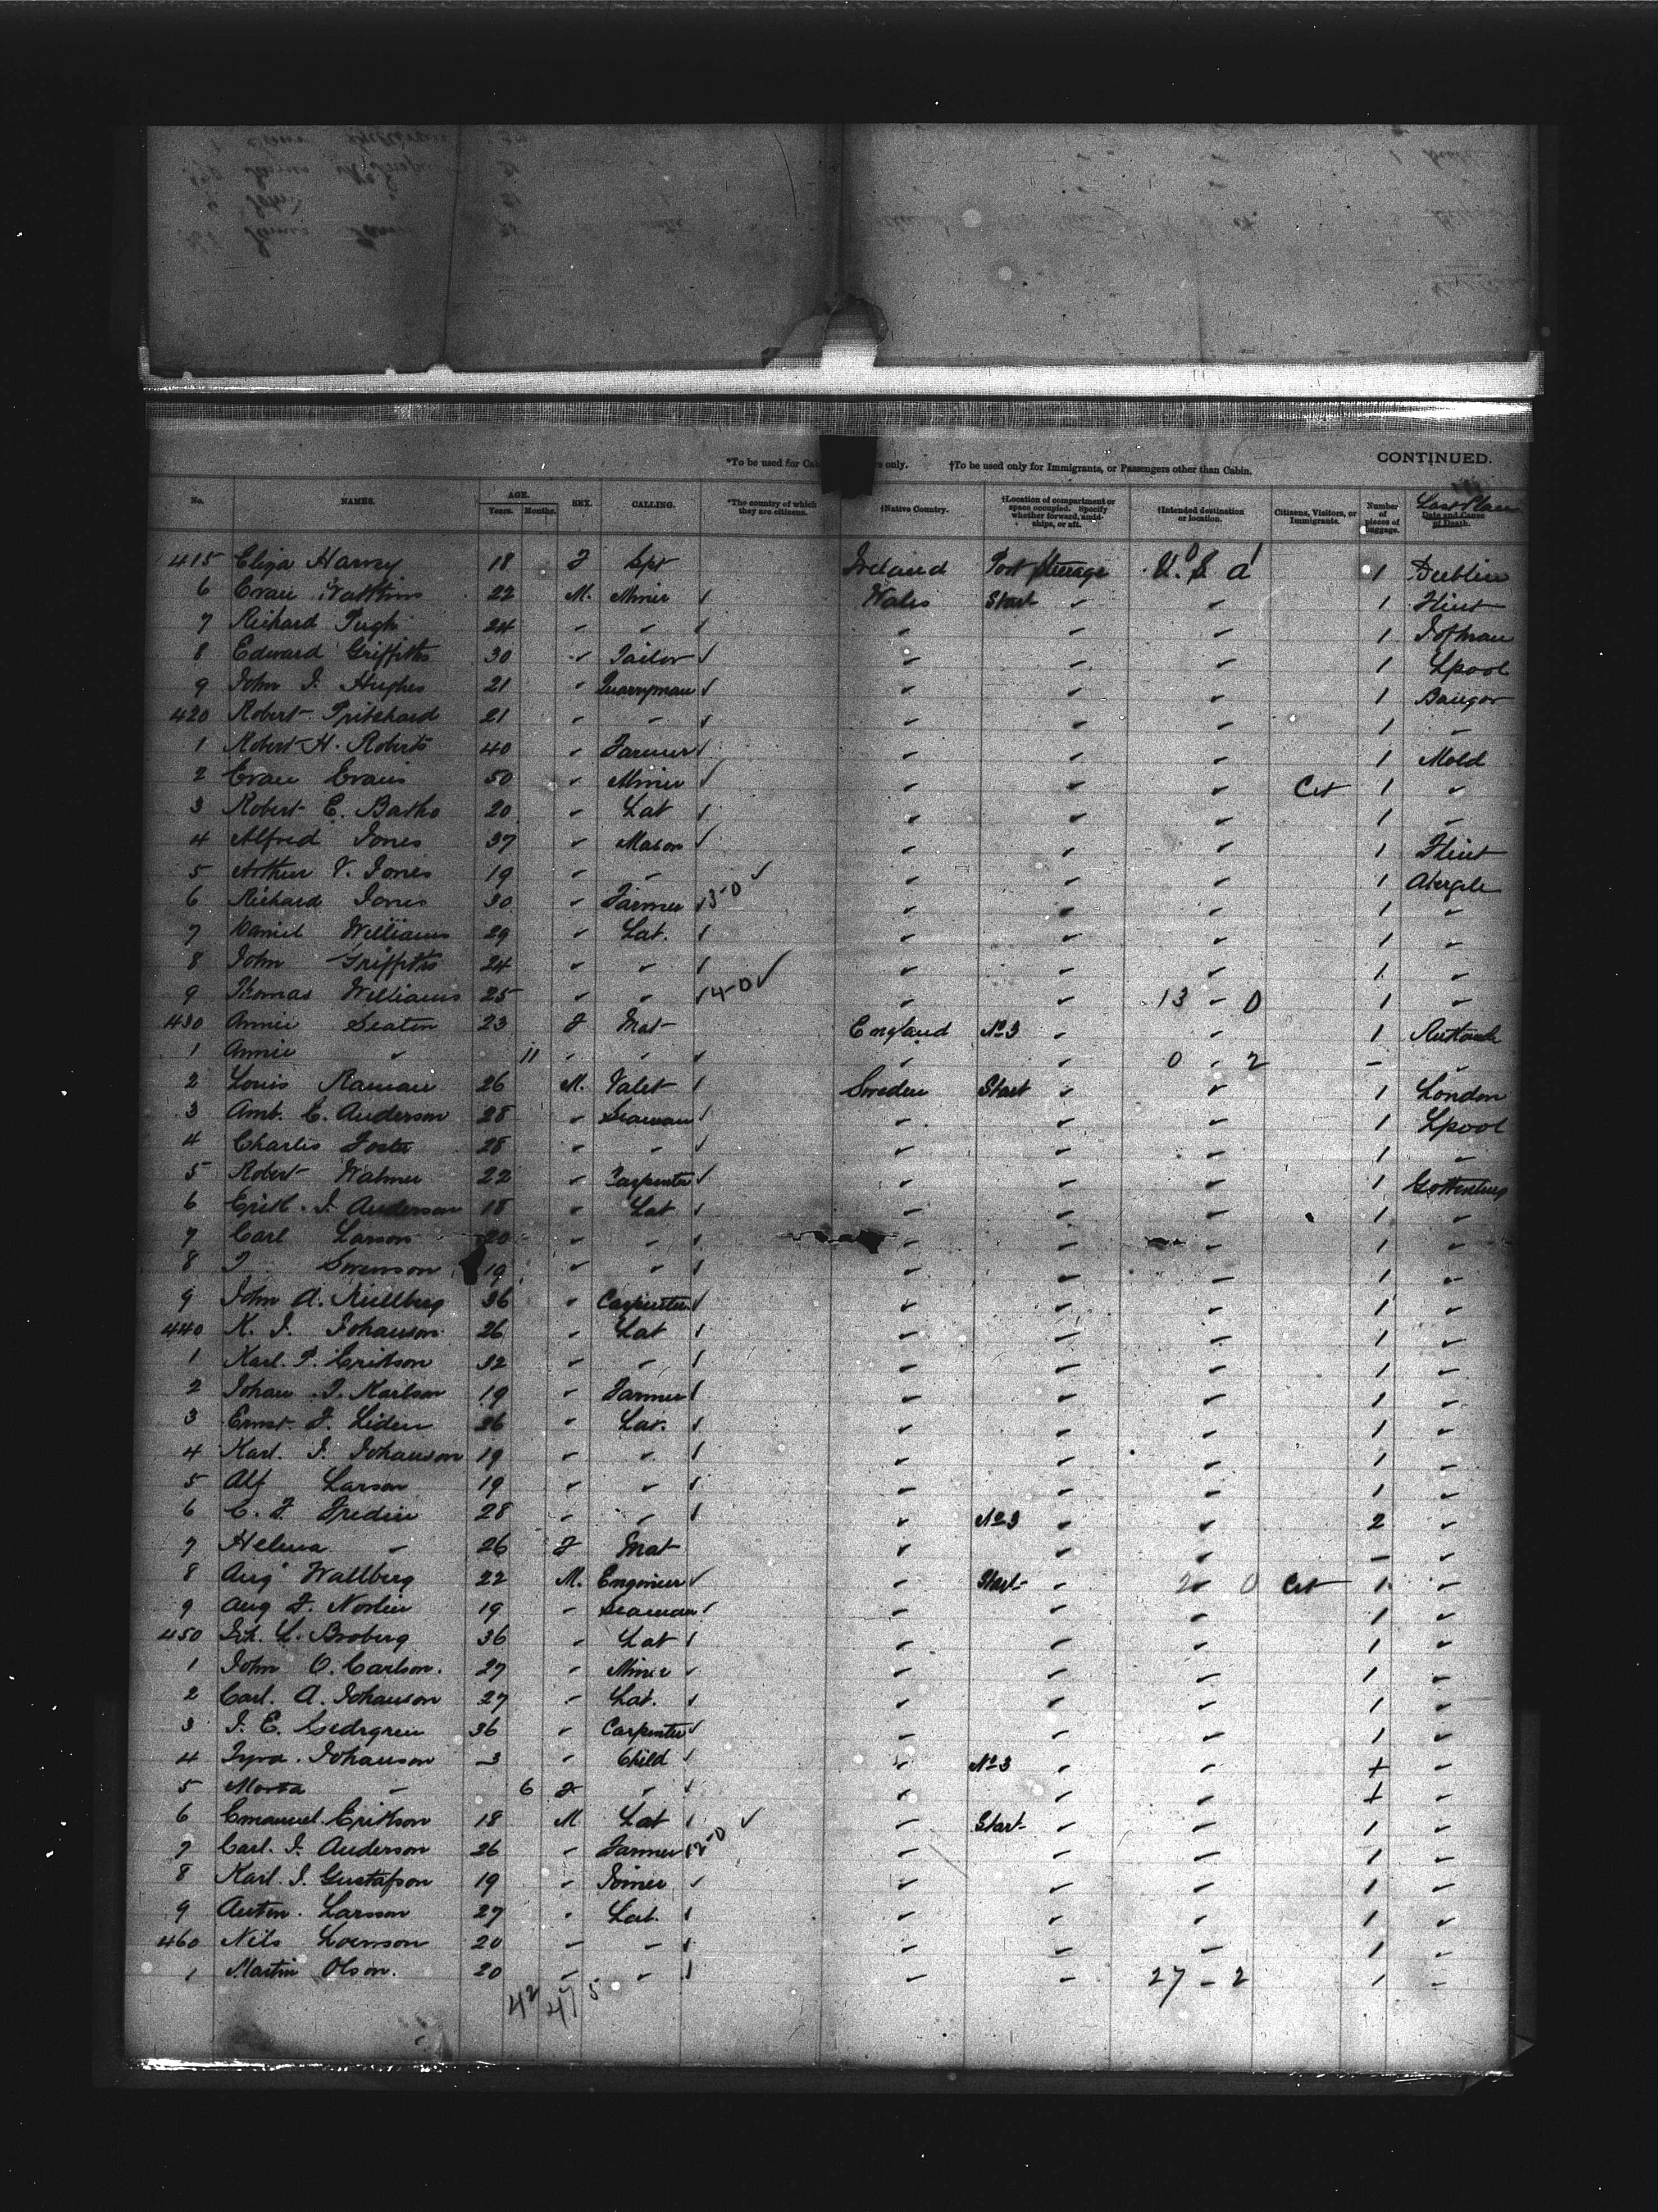 *To be used for Cab rs only. †To be used only for Immigrants, or Passengers other than Cabin. CONTINUED.
No. NAMES. AGE. Years. Months. SEX. CALLING. *The country of which they are citizens. †Native Country. †Location of compartment or space occupied. Specify whether forward, amidships, or aft. †Intended destination or location. Citizens, Visitors, or Immigrants. Number of pieces of baggage. Last Place Date and Cause of Death.
415 Eliza Harvey 18 F Spt Ireland Port Steerage U.S.A 1 Dublin
6 Evan Watkins 22 M. Miner Wales Start " " 1 Flint
7 Richard Pugh 24 " " " " " 1
8 Edward Griffiths 30 " Tailor " " " 1 Lpool
9 John J. Hughes 21 " Quarryman " " " 1 Bangor
420 Robert Pritchard 21 " " " " " 1 "
1 Robert H. Roberts 40 " Farmer " " " 1 Mold
2 Evan Evans 50 " Miner " " " Cit 1 "
3 Robert E. 20 " Lab " " " 1 "
4 Alfred Jones 37 " Mason " " " 1 Flint
5 Arthur V. Jones 19 " " " " " 1 Abergele
6 Richard Jones 30 " Farmer 3-0 " " " 1 "
7 Daniel Williams 29 " Lab. " " " 1 "
8 John Griffiths 24 " " " " " 1 "
9 Thomas Williams 25 " " 4-0 " " 13 - 0 1 "
430 Annie Seaton 23 F Mat England No 3 " " 1
1 Annie " 11 " " " " 0 - 2 - "
2 Louis 26 M. Valet Sweden Start " " 1 London
3 Amb. E. Anderson 28 " Seaman " " " 1 Lpool
4 Charles Foster 28 " " " " " 1 "
5 Robert Walmer 22 " Carpenter " " " 1 Gottenburg
6 J. Anderson 18 " Lab " " " 1 "
7 Carl Larson 20 " " " " " 1 "
8 Swenson 19 " " " " " 1 "
9 John A. Kullberg 36 " Carpenter " " " 1 "
440 K. J. Johanson 26 " Lab " " " 1 "
1 Karl. P. Erikson 32 " " " " " 1 "
2 Johan J. Karlson 19 " Farmer " " " 1 "
3 Ernst F. Liden 26 " Lab. " " " 1 "
4 Karl. J. Johanson 19 " " " " " 1 "
5 Alf Larson 19 " " " " " 1 "
6 C. F. Fredin 28 " " " No 3 " " 2 "
7 Helena " 26 F Mat " " " - "
8 Aug Wallberg 22 M. Engineer " Start " 2 0 Cit 1 "
9 Aug F. Norlin 19 " Seaman " " " 1 "
450 Joh. L. Broberg 36 " Lab " " " 1 "
1 John O. Carlson. 27 " Miner " " " 1 "
2 Carl. A. Johanson 27 " Lab. " " " 1 "
3 J. E. Cedrgren 36 " Carpenter " " " 1 "
4 Tyra. Johanson 3 " Child " No 3 " " + "
5 " 6 F " " " " + "
6 Emanuel Erikson 18 M Lab " Start " " 1 "
7 Carl. J. Anderson 26 " Farmer 12-0 " " " 1 "
8 Karl. J. Gustafson 19 " Joiner " " " 1 "
9 Anton. Larsson 27 " Lab. " " " 1 "
460 Nils 20 " " " " " 1 "
1 Martin Olson. 20 " " " " 27 - 2 1 "
42 47 5